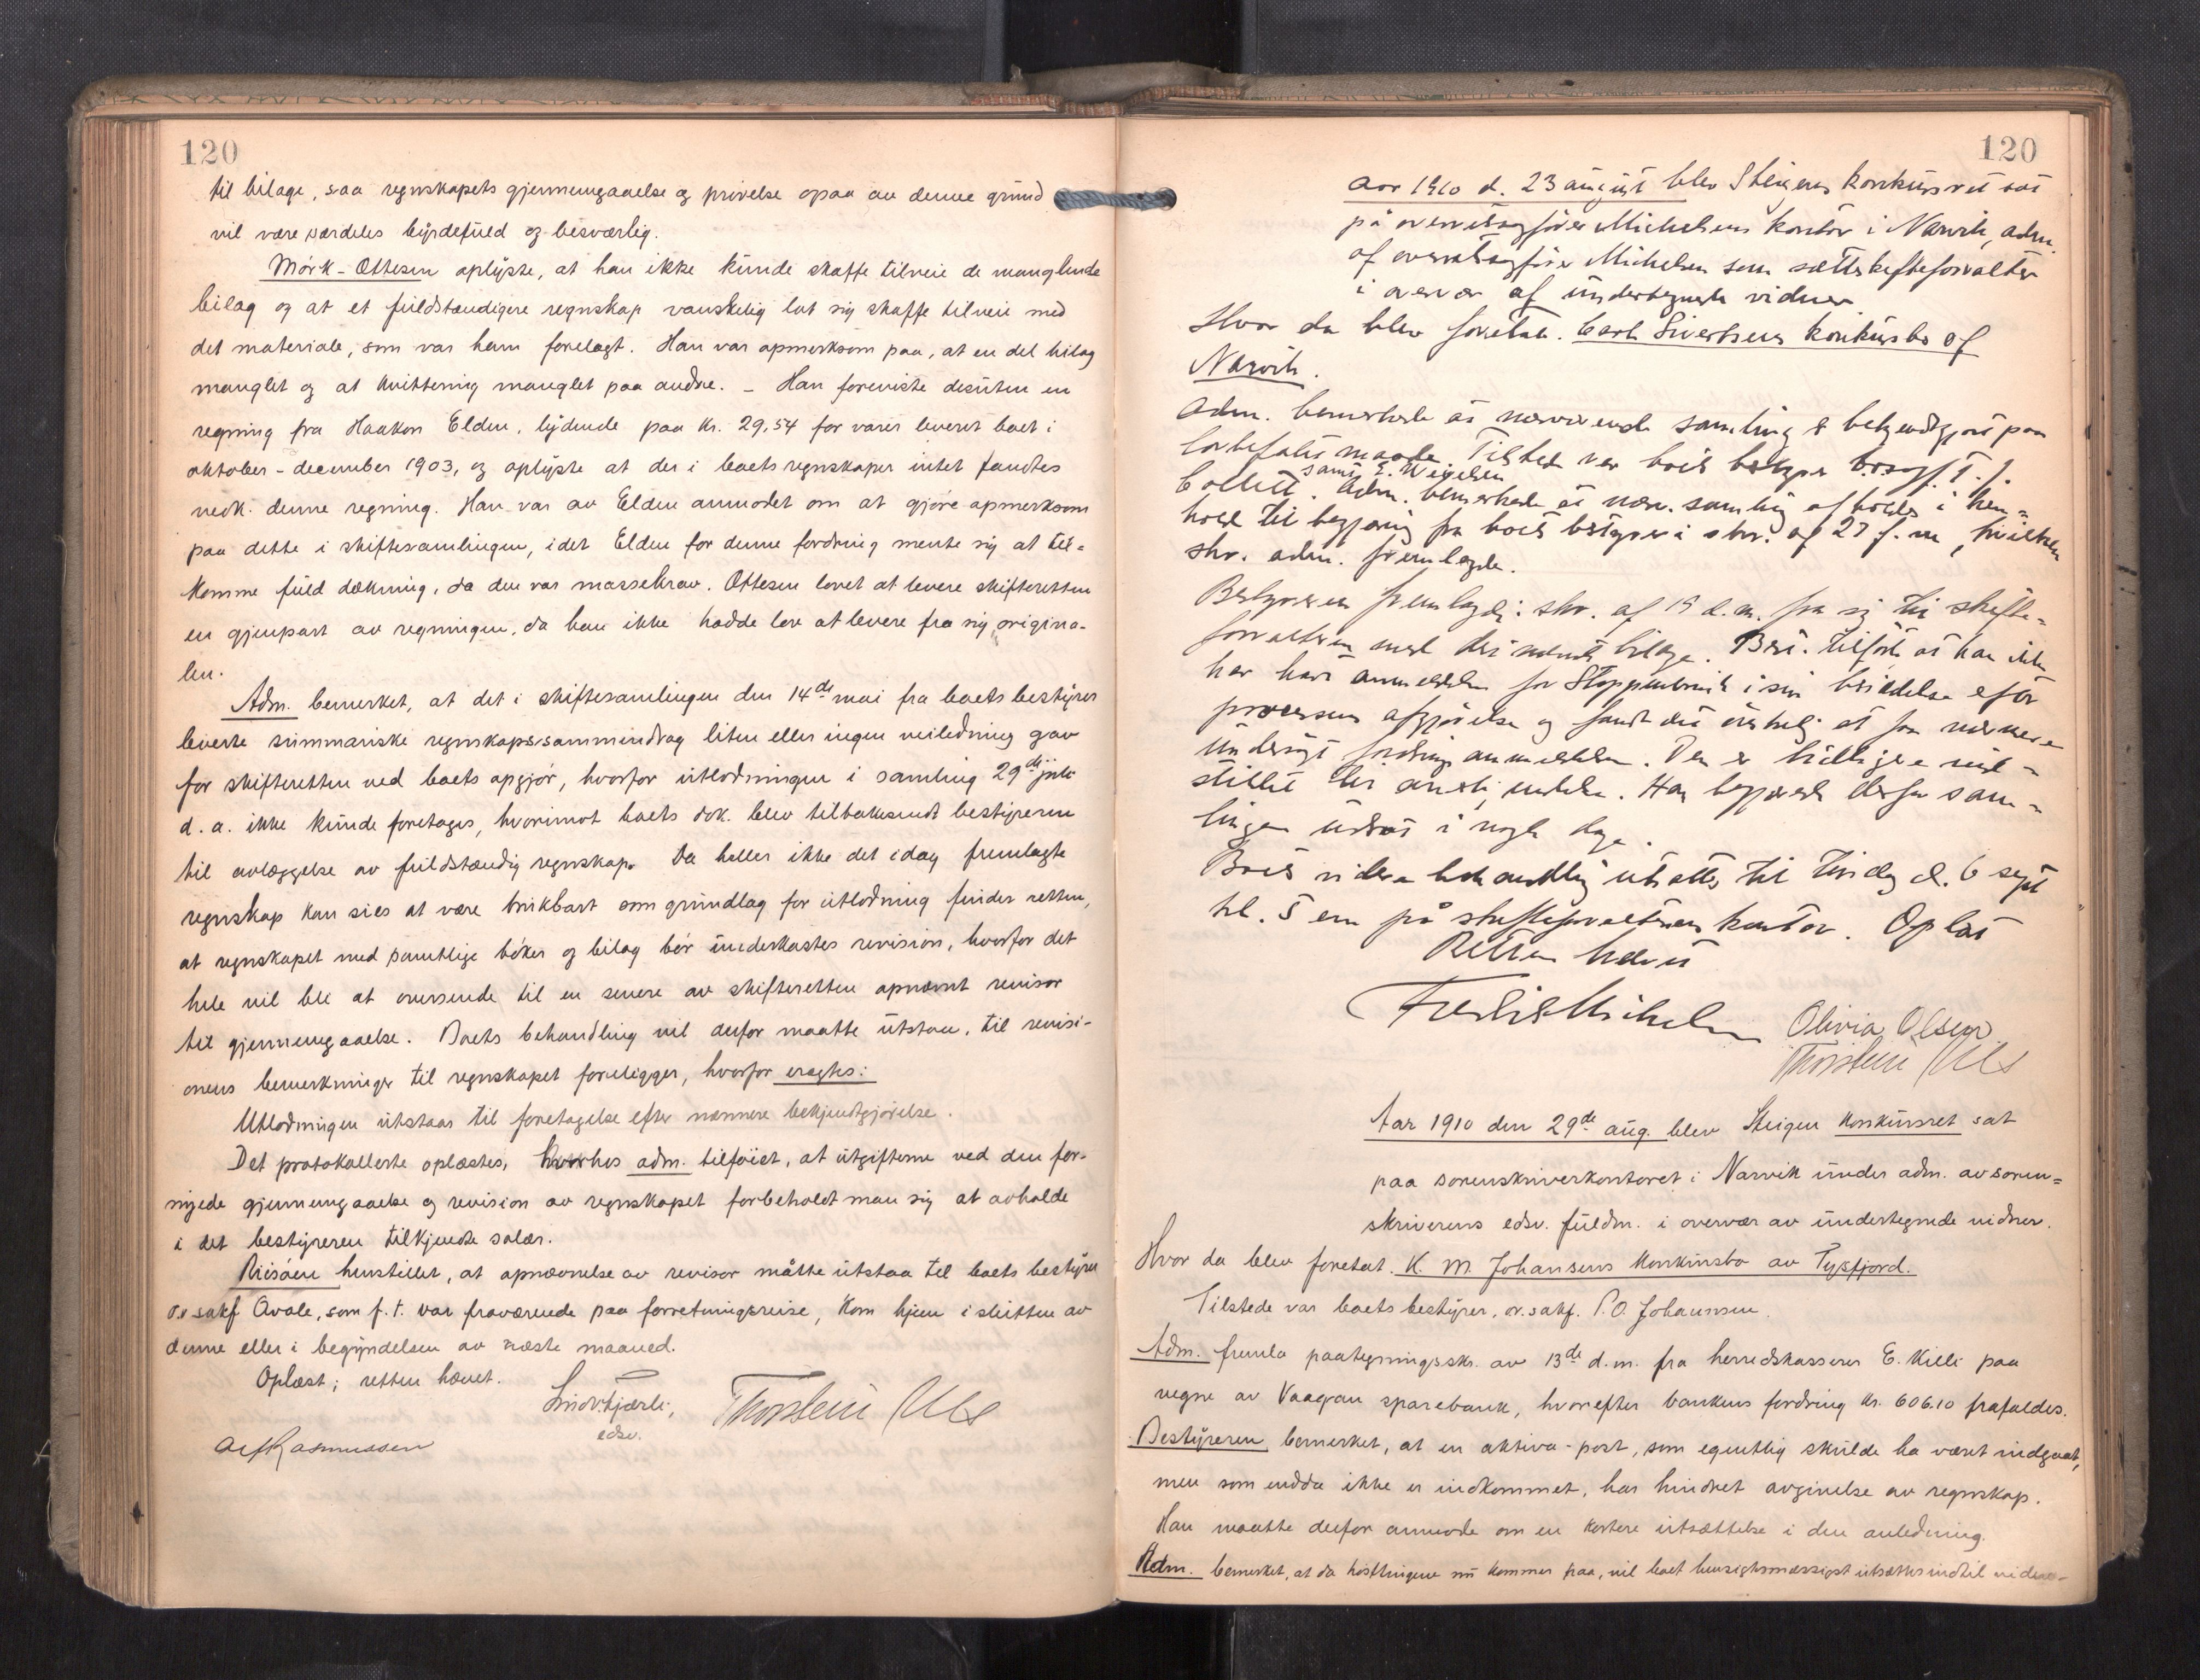 120
til bilage, saa regnskapets gjennemgaaelse og prøvelse ogsaa av denne grund
vil være særdeles byrdefuld og besværlig.
Mørk-Ottesen oplyste, at han ikke kunde skaffe tilveie de manglende
bilag og at et fuldstændigere regnskap vanskelig lot sig skaffe tilveie med
det materiale, som var ham forelagt. Han var opmerksom paa, at en del bilag
manglet og at kvittering manglet paa andre. – Han foreviste desuten en
regning fra Haakon Elden, lydende paa kr. 29,54 for varer leveret boet i
oktober - december 1903, og oplyste at der i boets regnskaper intet fandtes
vedk. denne regning. Han var av Elden anmodet om at gjøre opmerksom
paa dette i skiftesamlingen, idet Elden for denne fordring mente sig at til=
komme fuld dækning, da den var massekrav. Ottesen lovet at levere skifteretten
en gjenpart av regningen, da han ikke hadde lov at levere fra sig origina-
len.
Adm. bemerket, at det i skiftesamlingen den 14de mai fra boets bestyrer
leverte summariske regnskapssammendrag liten eller ingen veiledning gav
for skifteretten ved boets opgjør, hvorfor utlodningen i samling 29de juli
d. a. ikke kunde foretages, hvorimot boets dok. blev tilbakesendt bestyreren
til avlæggelse av fuldstændig regnskap. Da heller ikke det idag fremlagte
regnskap kan sies at være brukbart som grundlag for utlodning finder retten,
at regnskapet med samtlige bøker og bilag bør underkastes revision, hvorfor det
hele vil bli at oversende til en senere av skifteretten opnævnt revisor
til gjennemgaaelse. Boets behandling vil derfor maatte utstaa, til revisi-
onens bemerkninger til regnskapet foreligger, hvorfor eragtes:
Utlodningen utstaar til foretagelse efter nærmere bekjendtgjørelse.
Det protokollerte oplæstes, hvorhos adm. tilføiet, at utgifterne ved den for-
nyede gjennemgaaelse og revision av regnskapet forbeholdt man sig at avholde
i det bestyreren tilkjendte salær.
Riisøen henstillet, at opnævnelse av revisor måtte utstaa til boets bestyrer
o.r sakf Avale, som f. t. var fraværende paa forretningsreise, kom hjem i slutten av
denne eller i begyndelsen av næste maaned.
Oplæst; retten hævet.
edsv.
Thorstein
Alf Rasmussen
120
Aar 1910 d. 23 august blev Steigens konkursret sat
på overretssagfører Michelsens kontor i Narvik, adm.
af overretssagfører Michelsen som sætteskifteforvalter
i overvær af undertegnede vidner
Hvor da blev foretat. Carl Sivertsens konkursbo af
Narvik.
Adm. bemerkede at nærværende samling er bekjendtgjort paa
lovbefalet maade. Tilstede var boets bestyrer o.r.sagf. T. J.
samt E. Wigelsen
Collett. Adm. bemerkede at nærv. samling afholdes i hen=
hold til begjæring fra boets bestyrer i skr. af 27 f. m, hvilken
skr. adm. fremlagde.
Bestyreren fremlagde: skr. af 19 d. m. fra sig til skifte=
forvalteren med deri nævnte bilage. Best. tilføiet at han ikke
har havt anmeldelsen for i sin besiddelse efter
processens afgjørelse og fandt det ønskelig at faa nærmere
undersøgt fordringsanmeldelsen. Den er
stillet til anmeldelse. Han begjærede derfor sam=
lingen udsat i nogle dage.
Boets videre behandling utsættes til tirsdag d. 6 sept
kl. 5 em på skifteforvalterens kontor. Oplæst
Retten hævet
Fredrik Michelsen Olivia Olsen
Thorstein
Aar 1910 den 29de aug. blev Steigen konkursret sat
paa sorenskriverkontoret i Narvik under adm. av soren=
skriverens edsv. fuldm. i overvær av undertegnede vidner.
Hvor da blev foretat. K. M. Johansens konkursbo av Tysfjord.
Tilstede var boets bestyrer, or.sakf. P. O. Johannsen.
Adm. fremla paategningsskr. av 13de d. m. fra herredskasserer E. Killi paa
vegne av Vaagan sparebank, hvorefter bankens fordring kr. 606.10 frafaldes.
Bestyreren bemerket, at en aktiva-post, som egentlig skulde ha været indgaat,
men som endda ikke er indkommet, har hindret avgivelse av regnskap.
Han maatte derfor anmode om en kortere utsættelse i den anledning.
Adm. bemerket, at da høsttingene nu kommer paa, vil boet hensigtsmæssigst utsættes indtil videre-